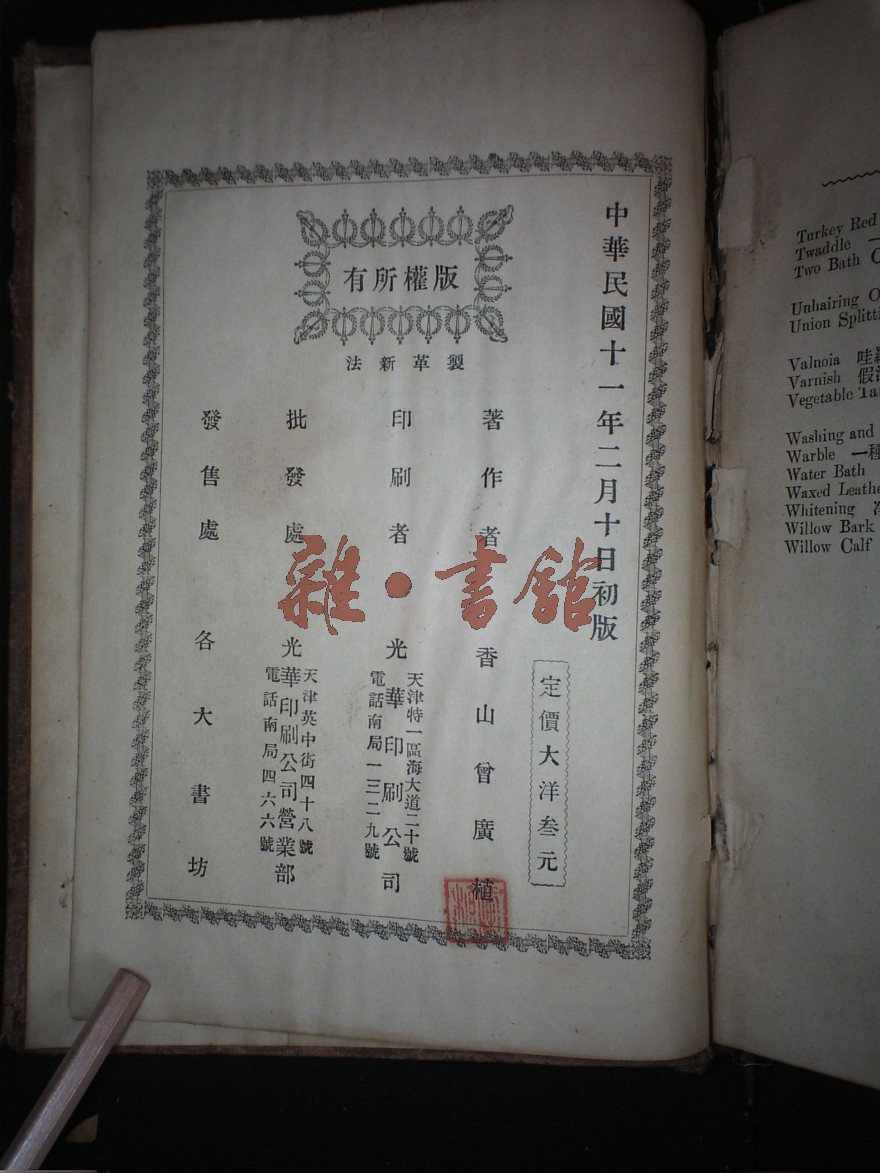 中華民國十一年二月十日初版
定價大洋叁元
版權所有
製革新法
著作者 香山曾廣植
印刷者 光華印刷公司
天津特一區海大道二十號
電話南局一三二九號
批發處 光華印刷公司營業部
天津英中街四十八號
電話南局四六六號
發售處 各大書坊
雜·書館
Turkey Red
Twaddle 一
Two Bath
Unhairing
Union Splitti
Valnoia 哇
Varnish 假
Vegetable Ta
Washing and
Warble 一種
Water Bath
Waxed Leathe
Whitening
Willow Bark
Willow Calf